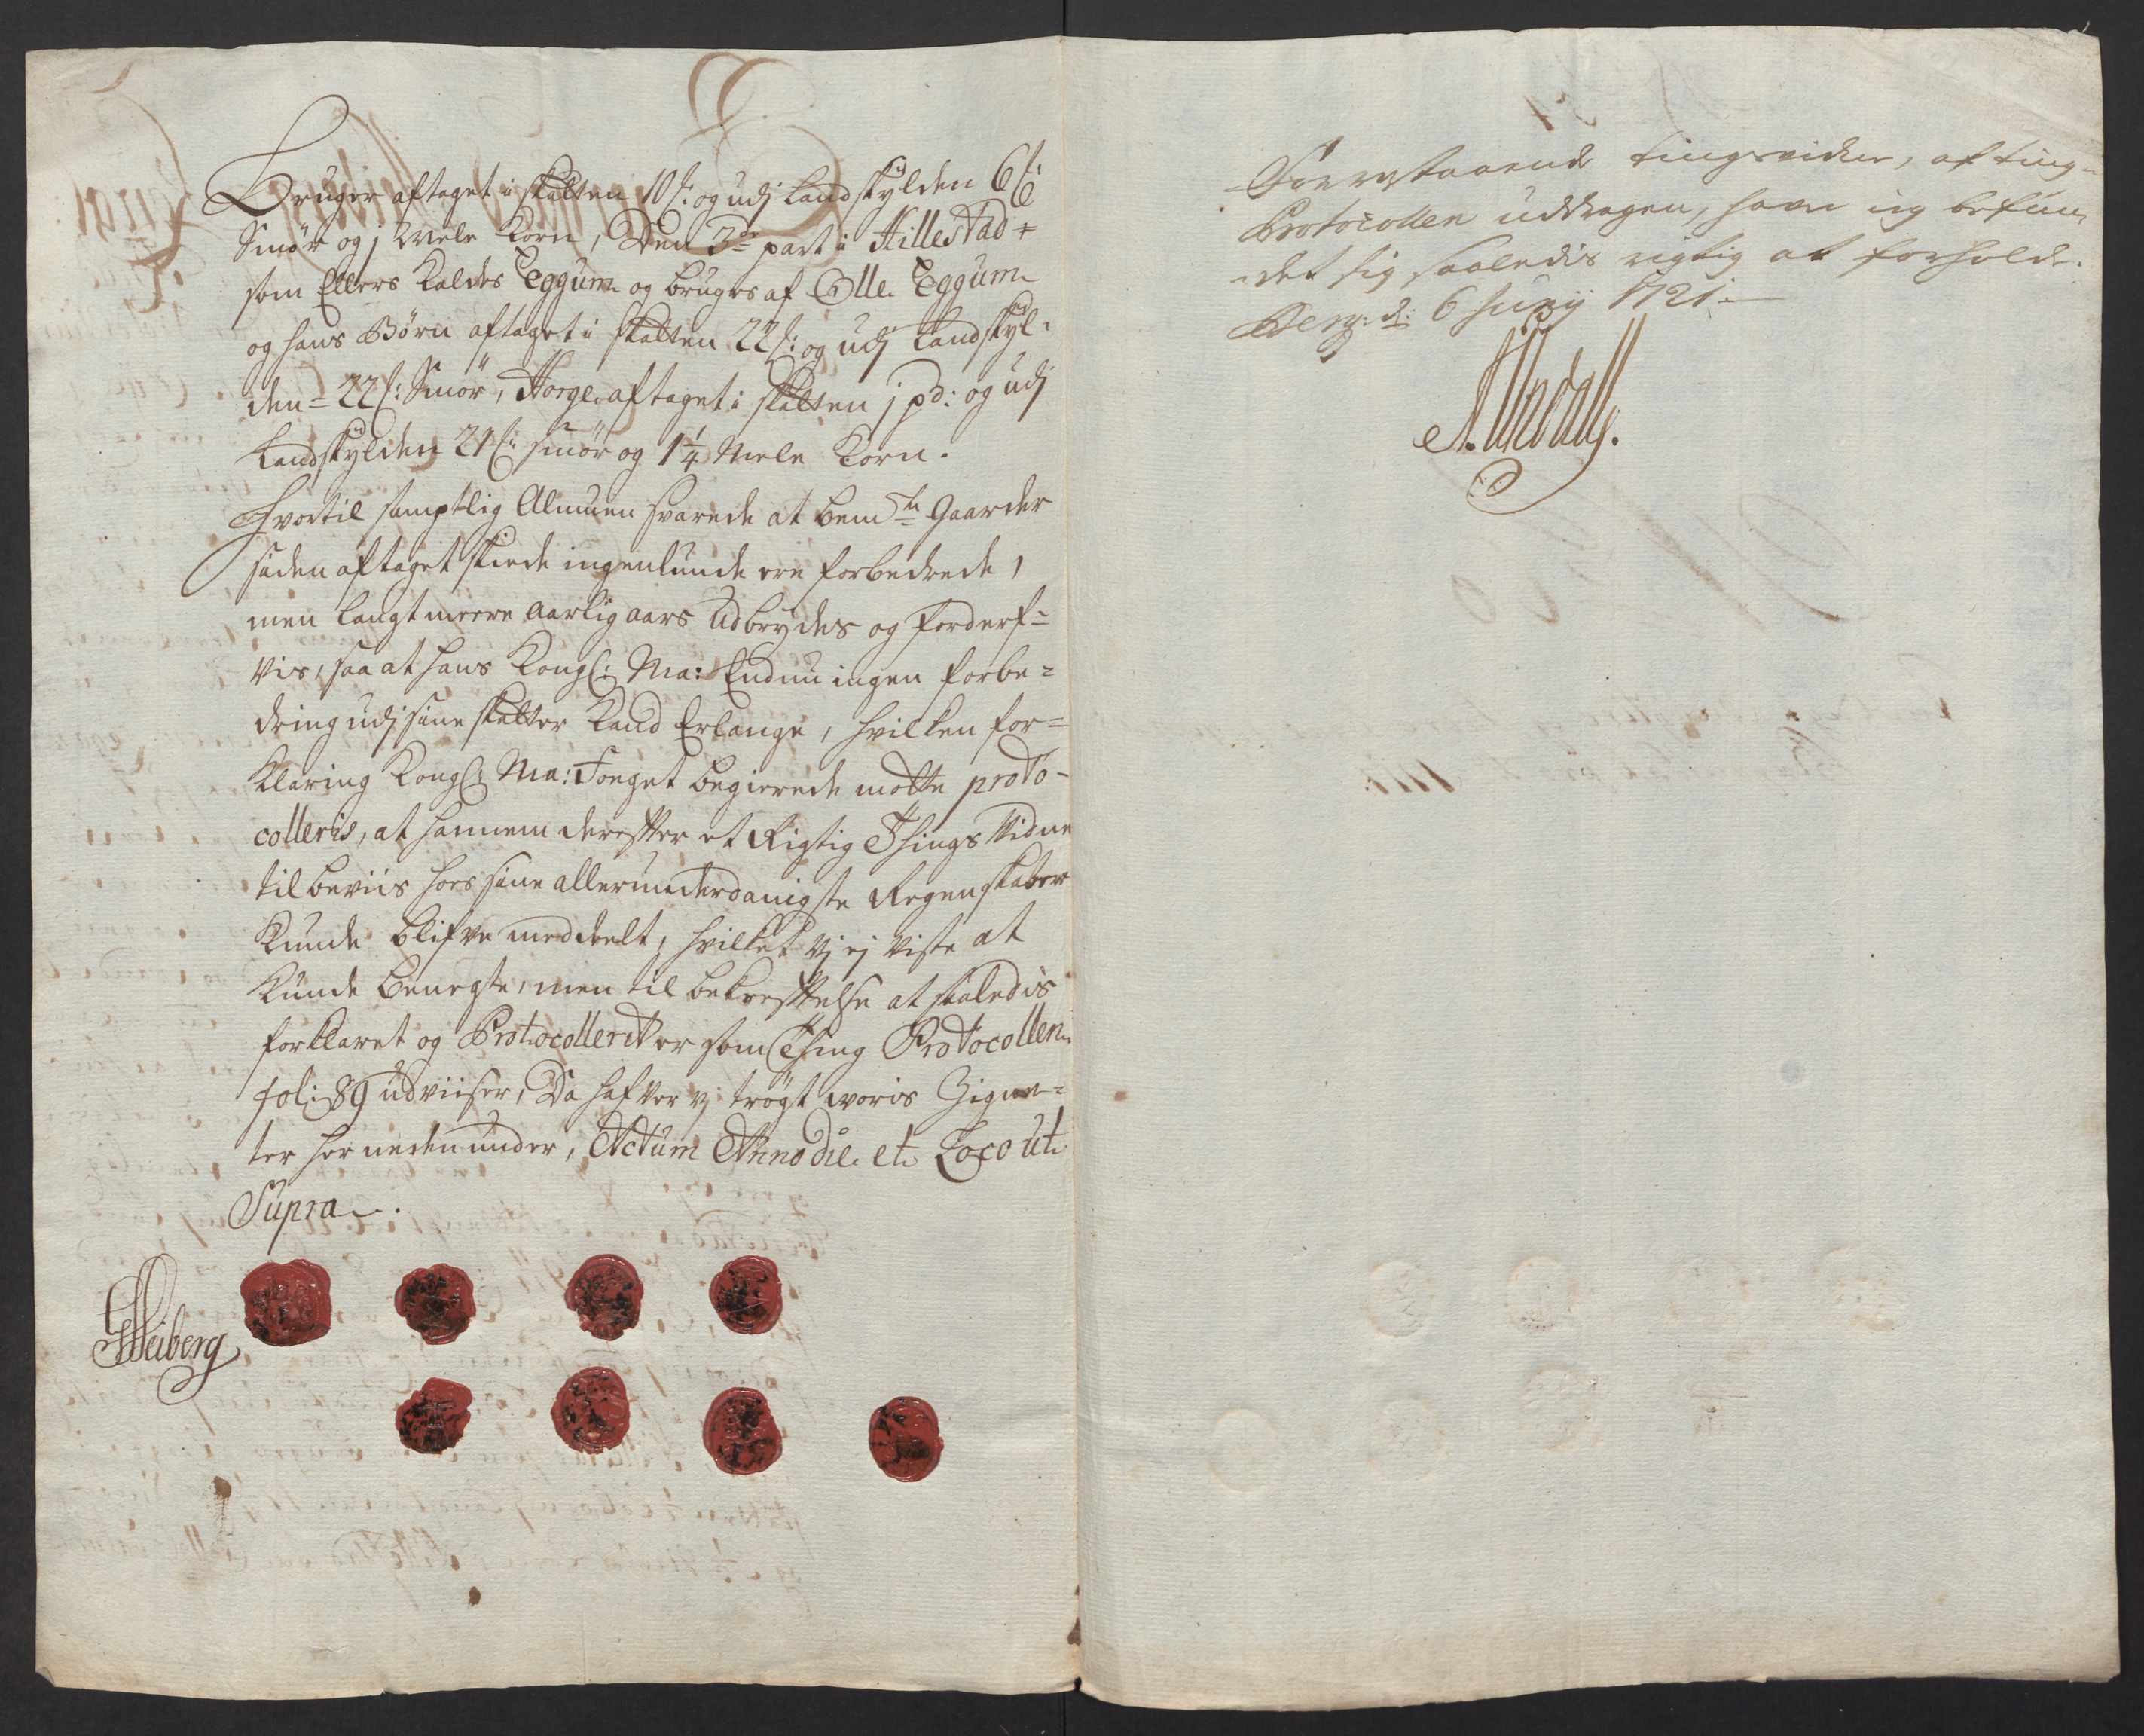 Bruger aftaget i skatten 10 s: og udj Landskylden 6 s
Smör og j Mele Korn, Den 3de part i Hillestad
som Ellers Kaldes Eggum og bruges af Olle Eggum
og hans Börn aftaget i skatten 22 s: og udj Landskyl-
den = 22 s: Smör, Horge aftaget i skatten j pd: og udj
Landskylden 21 s: smör og 1 1/4 Mele Korn.
Hvortil samptlig Almuen svarede at bem.te Gaarder
siden aftaget skiede ingenlunde ere forbedrede,
men langt meere aarlig aars Udbrydes og forderf-
vis, saa at hans Kongl: Ma: Endnu ingen forbe-
dring udj sine skatter Kand Erlange, hvilken for-
Klaring Kongl: Ma: Foeget begierede motte proto-
colleris, at hannem derefter et Rigtig Things Vidne
til beviis hos sine allerunderdanigste Regenskaber
Kunde blifve meddeelt, hvilket vj ej viste at
Kunde benegte, men til bekreftelse at saaledis
forklaret og Protocollerit er som Thing Protocollen
fol: 89 udviiser, Da hafver vj trögt woris Zigne-
ter her neden under, Actum Anno die et Loco ut
Supra.
Weiberg
Foerestaaende tingsvidne, af ting-
Protocollen uddragen, haver ieg befun-
det sig saaledis rigtig at forholde.
Berg: d: 6 Junij 1721